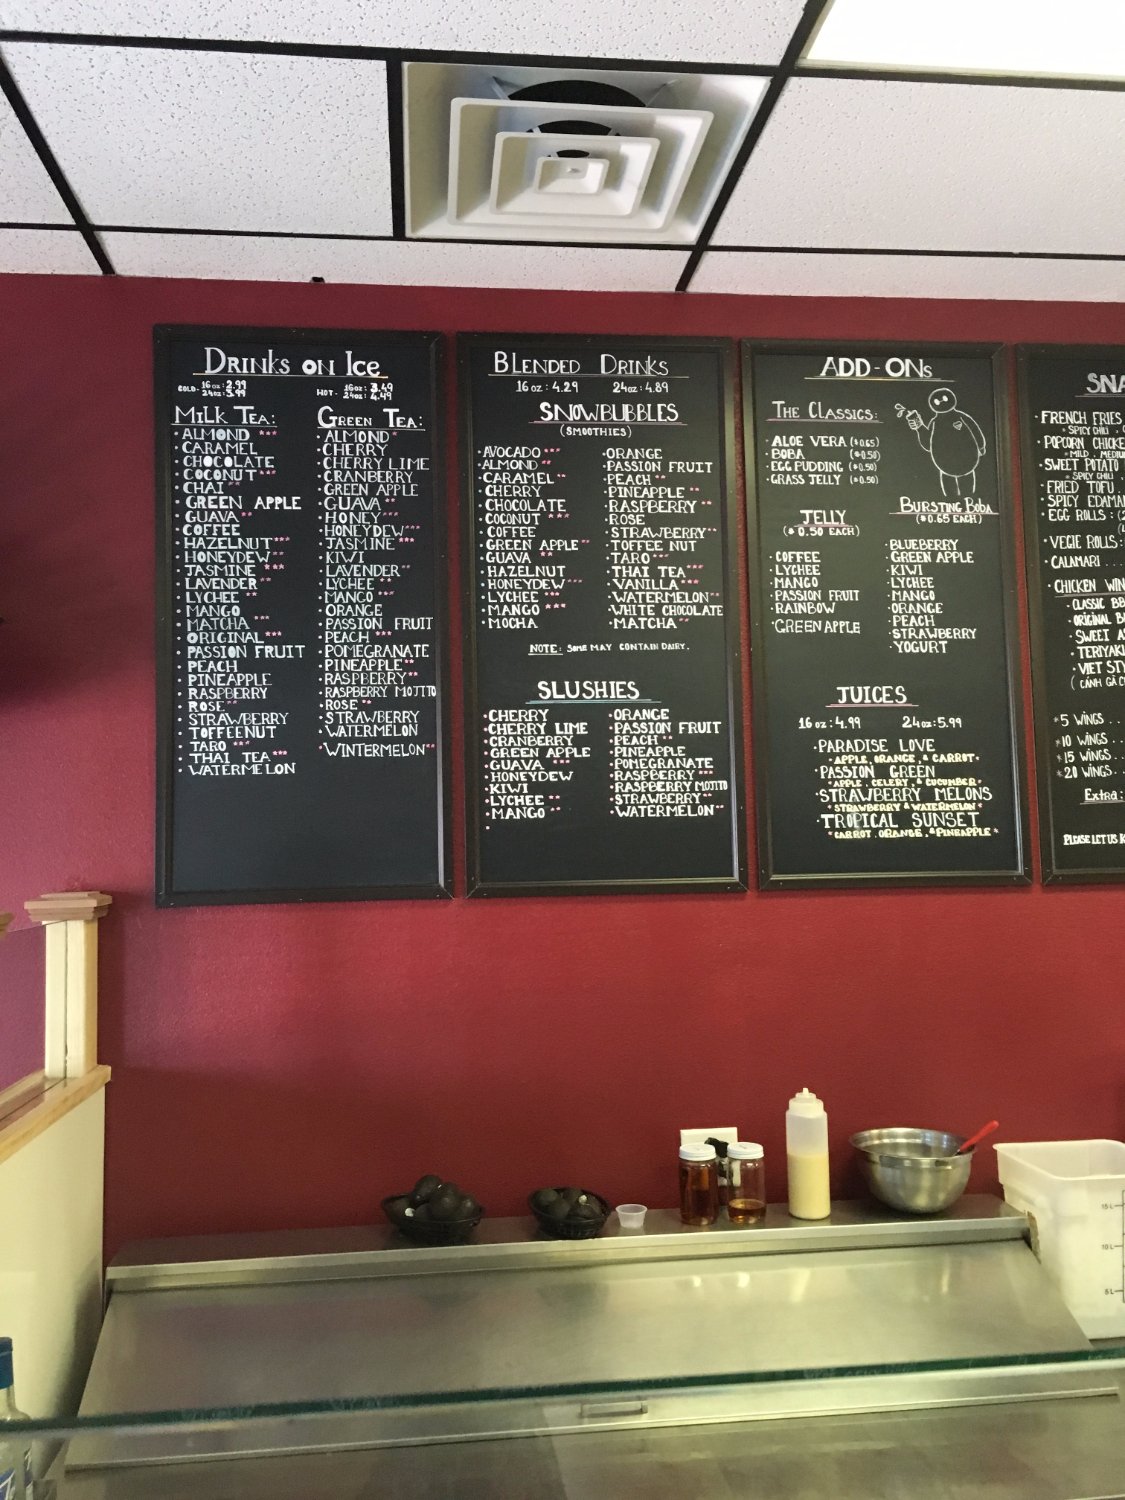 DRINKS ON ICE
COLD- 16oz: 2.99
24oz: 3.99
HOT- 16oz: 3.49
24oz: 4.49
MILK TEA:
• ALMOND ***
• CARAMEL
• CHOCOLATE
• COCONUT ***
• CHAI **
• GREEN APPLE
• GUAVA **
• COFFEE
• HAZELNUT ***
• HONEYDEW **
• JASMINE ***
• LAVENDER **
• LYCHEE **
• MANGO
• MATCHA ***
• ORIGINAL ***
• PASSION FRUIT
• PEACH
• PINEAPPLE
• RASPBERRY
• ROSE **
• STRAWBERRY
• TOFFEENUT
• TARO ***
• THAI TEA ***
• WATERMELON
GREEN TEA:
• ALMOND *
• CHERRY
• CHERRY LIME
• CRANBERRY
• GREEN APPLE
• GUAVA **
• HONEY ***
• HONEYDEW ***
• JASMINE ***
• KIWI
• LAVENDER **
• LYCHEE **
• MANGO ***
• ORANGE
• PASSION FRUIT
• PEACH ***
• POMEGRANATE
• PINEAPPLE **
• RASPBERRY **
• RASPBERRY MOJITO
• ROSE **
• STRAWBERRY
• WATERMELON
• WINTERMELON **
BLENDED DRINKS
16oz: 4.29 24oz: 4.89
SNOWBUBBLES
(SMOOTHIES)
• AVOCADO ***
• ALMOND **
• CARAMEL **
• CHERRY
• CHOCOLATE
• COCONUT ***
• COFFEE
• GREEN APPLE **
• GUAVA **
• HAZELNUT
• HONEYDEW ***
• LYCHEE ***
• MANGO ***
• MOCHA
• ORANGE
• PASSION FRUIT
• PEACH **
• PINEAPPLE **
• RASPBERRY **
• ROSE
• STRAWBERRY **
• TOFFEE NUT
• TARO ***
• THAI TEA ***
• VANILLA ***
• WATERMELON **
• WHITE CHOCOLATE
• MATCHA **
NOTE: SOME MAY CONTAIN DAIRY.
SLUSHIES
• CHERRY
• CHERRY LIME
• CRANBERRY
• GREEN APPLE
• GUAVA ***
• HONEYDEW
• KIWI
• LYCHEE **
• MANGO **
• ORANGE
• PASSION FRUIT
• PEACH **
• PINEAPPLE
• POMEGRANATE
• RASPBERRY ***
• RASPBERRY MOJITO
• STRAWBERRY **
• WATERMELON **
ADD-ONs
THE CLASSICS:
• ALOE VERA ($0.65)
• BOBA ($0.50)
• EGG PUDDING ($0.50)
• GRASS JELLY ($0.50)
JELLY
($0.50 EACH)
• COFFEE
• LYCHEE
• MANGO
• PASSION FRUIT
• RAINBOW
• GREEN APPLE
BURSTING BOBA
($0.65 EACH)
• BLUEBERRY
• GREEN APPLE
• KIWI
• LYCHEE
• MANGO
• ORANGE
• PEACH
• STRAWBERRY
• YOGURT
JUICES
16oz: 4.99 24oz: 5.99
• PARADISE LOVE
* APPLE, ORANGE, & CARROT *
• PASSION GREEN
* APPLE, CELERY, & CUCUMBER *
• STRAWBERRY MELONS
* STRAWBERRY & WATERMELON *
• TROPICAL SUNSET
* CARROT, ORANGE, & PINEAPPLE *
SNA
• FRENCH FRIES
* SPICY CHILI
• POPCORN CHICKE
* MILD, MEDIU
• SWEET POTATO
* SPICY CHILI,
• FRIED TOFU
• SPICY EDAMA
• EGG ROLLS: (2
• VEGIE ROLLS:
• CALAMARI . . .
• CHICKEN WIN
• CLASSIC BB
• ORIGINAL B
• SWEET A
• TERIYAKI
• VIET STY
(CÁNH GÀ C
* 5 WINGS . .
* 10 WINGS . .
* 15 WINGS . .
* 20 WINGS . .
Extra:
PLEASE LET US K
15 L
10 L
5 L